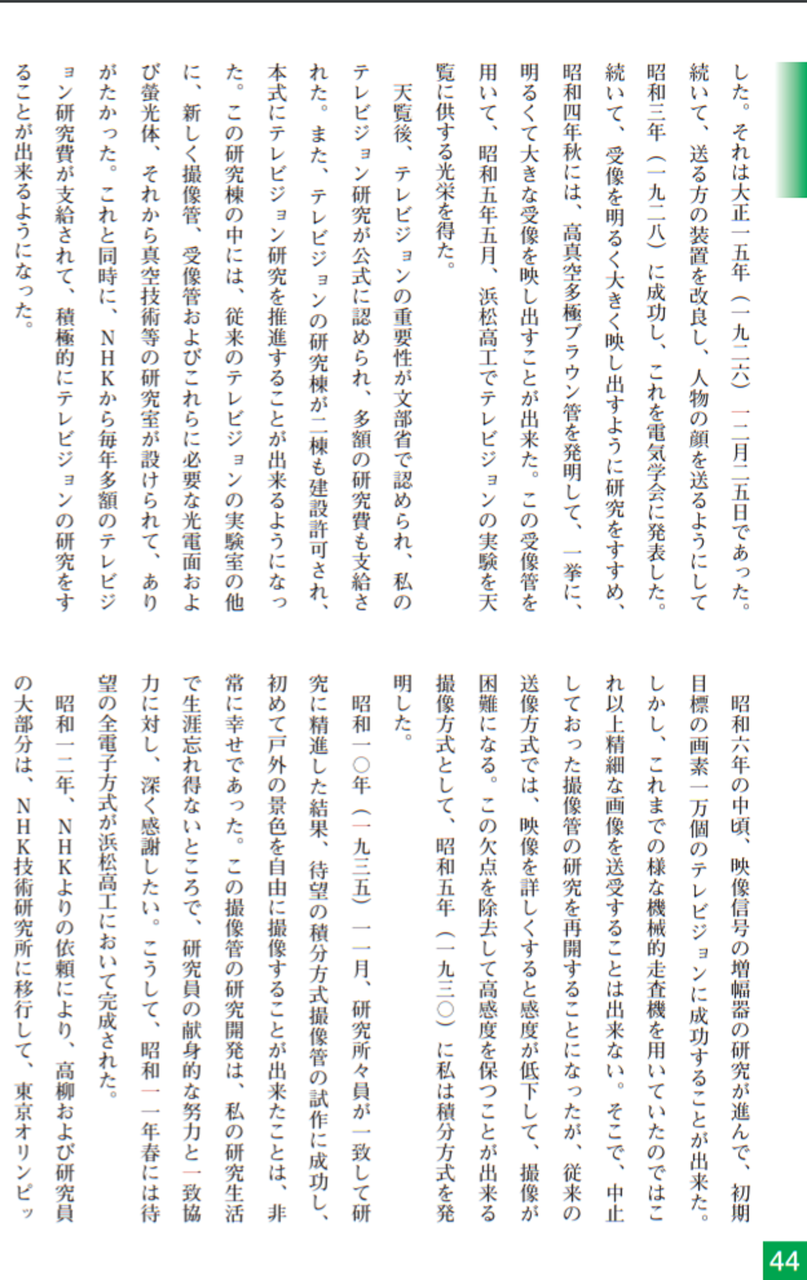 した。それは大正一五年（一九二六）一二月二五日であった。
続いて、送る方の装置を改良し、人物の顔を送るようにして
昭和三年（一九二八）に成功し、これを電気学会に発表した。
続いて、受像を明るく大きく映し出すように研究をすすめ、
昭和四年秋には、高真空多極ブラウン管を発明して、一挙に、
明るくて大きな受像を映し出すことが出来た。この受像管を
用いて、昭和五年五月、浜松高工でテレビジョンの実験を天
覧に供する光栄を得た。
　天覧後、テレビジョンの重要性が文部省で認められ、私の
テレビジョン研究が公式に認められ、多額の研究費も支給さ
れた。また、テレビジョンの研究棟が二棟も建設許可され、
本式にテレビジョン研究を推進することが出来るようになっ
た。この研究棟の中には、従来のテレビジョンの実験室の他
に、新しく撮像管、受像管およびこれらに必要な光電面およ
び螢光体、それから真空技術等の研究室が設けられて、あり
がたかった。これと同時に、NHKから毎年多額のテレビジ
ョン研究費が支給されて、積極的にテレビジョンの研究をす
ることが出来るようになった。
　昭和六年の中頃、映像信号の増幅器の研究が進んで、初期
目標の画素一万個のテレビジョンに成功することが出来た。
しかし、これまでの様な機械的走査機を用いていたのではこ
れ以上精細な画像を送受することは出来ない。そこで、中止
しておった撮像管の研究を再開することになったが、従来の
送像方式では、映像を詳しくすると感度が低下して、撮像が
困難になる。この欠点を除去して高感度を保つことが出来る
撮像方式として、昭和五年（一九三〇）に私は積分方式を発
明した。
　昭和一〇年（一九三五）一一月、研究所々員が一致して研
究に精進した結果、待望の積分方式撮像管の試作に成功し、
初めて戸外の景色を自由に撮像することが出来たことは、非
常に幸せであった。この撮像管の研究開発は、私の研究生活
で生涯忘れ得ないところで、研究員の献身的な努力と一致協
力に対し、深く感謝したい。こうして、昭和一一年春には待
望の全電子方式が浜松高工において完成された。
　昭和一二年、NHKよりの依頼により、高柳および研究員
の大部分は、NHK技術研究所に移行して、東京オリンピッ
44